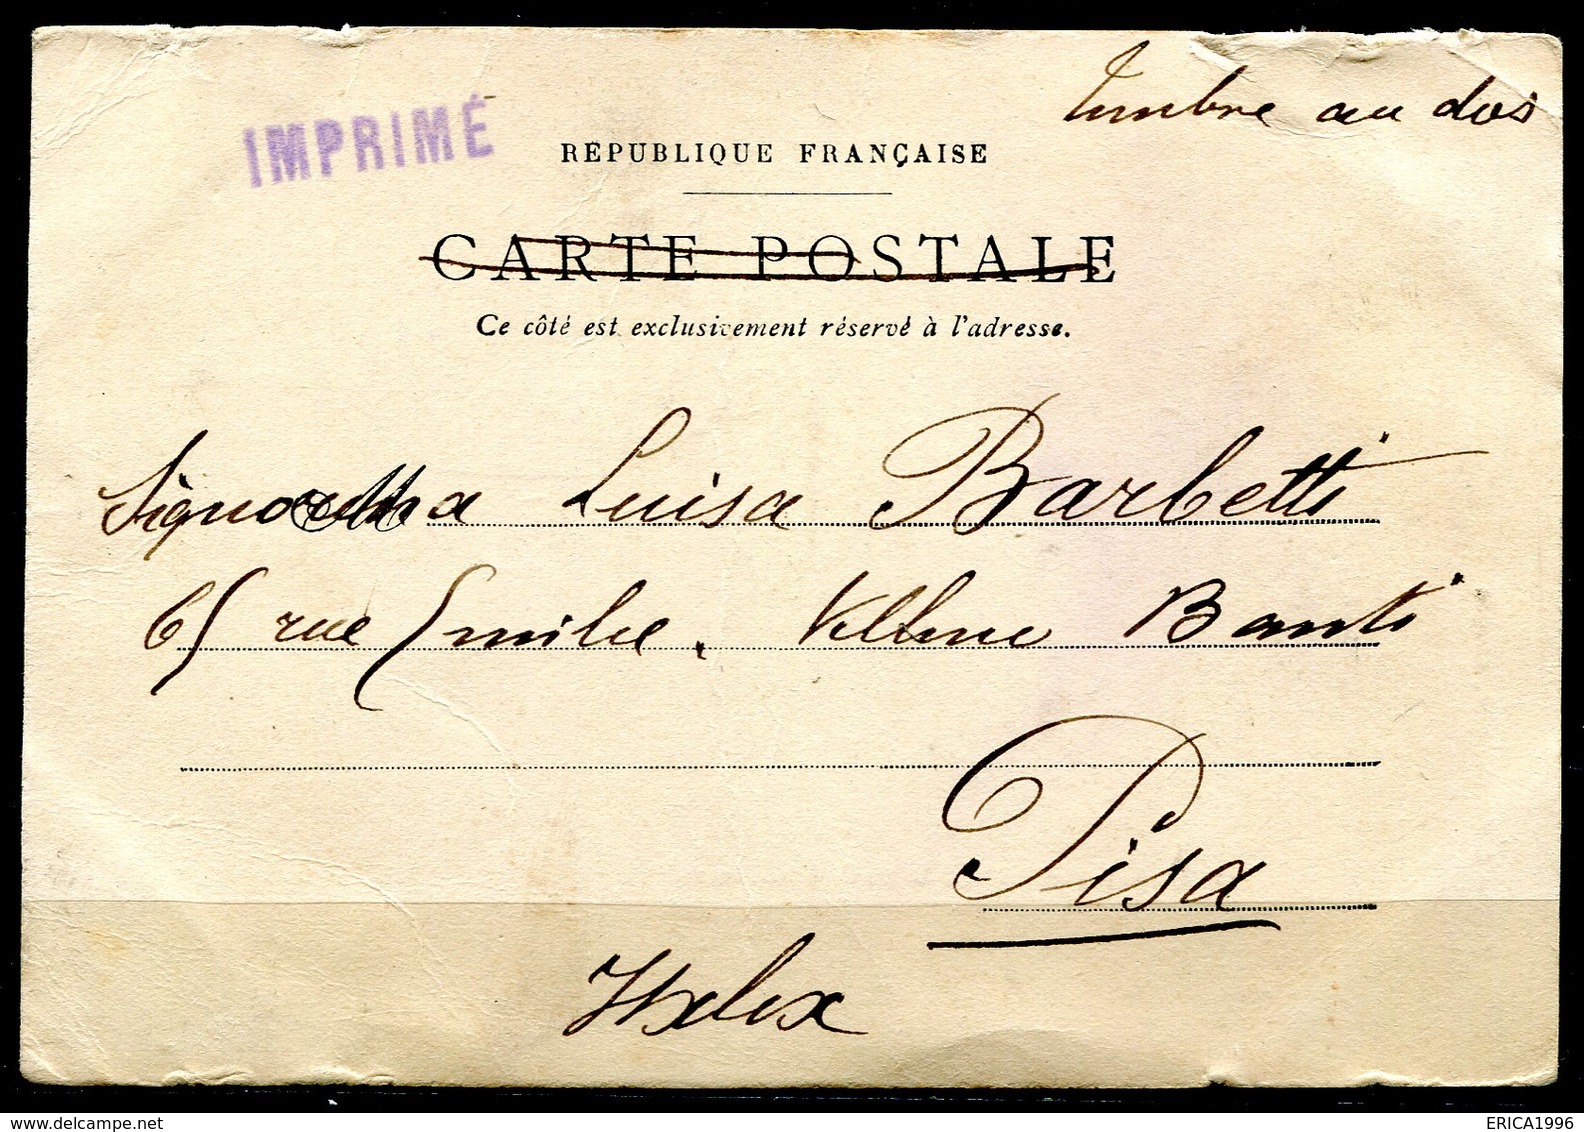 Timbre au dos
IMPRIMÉ
RÉPUBLIQUE FRANÇAISE
CARTE POSTALE
Ce côté est exclusivement réservé à l'adresse.
Signora Luisa Barbetti
65 rue Emilie. Banti
Pisa
Italia
ERICA1996